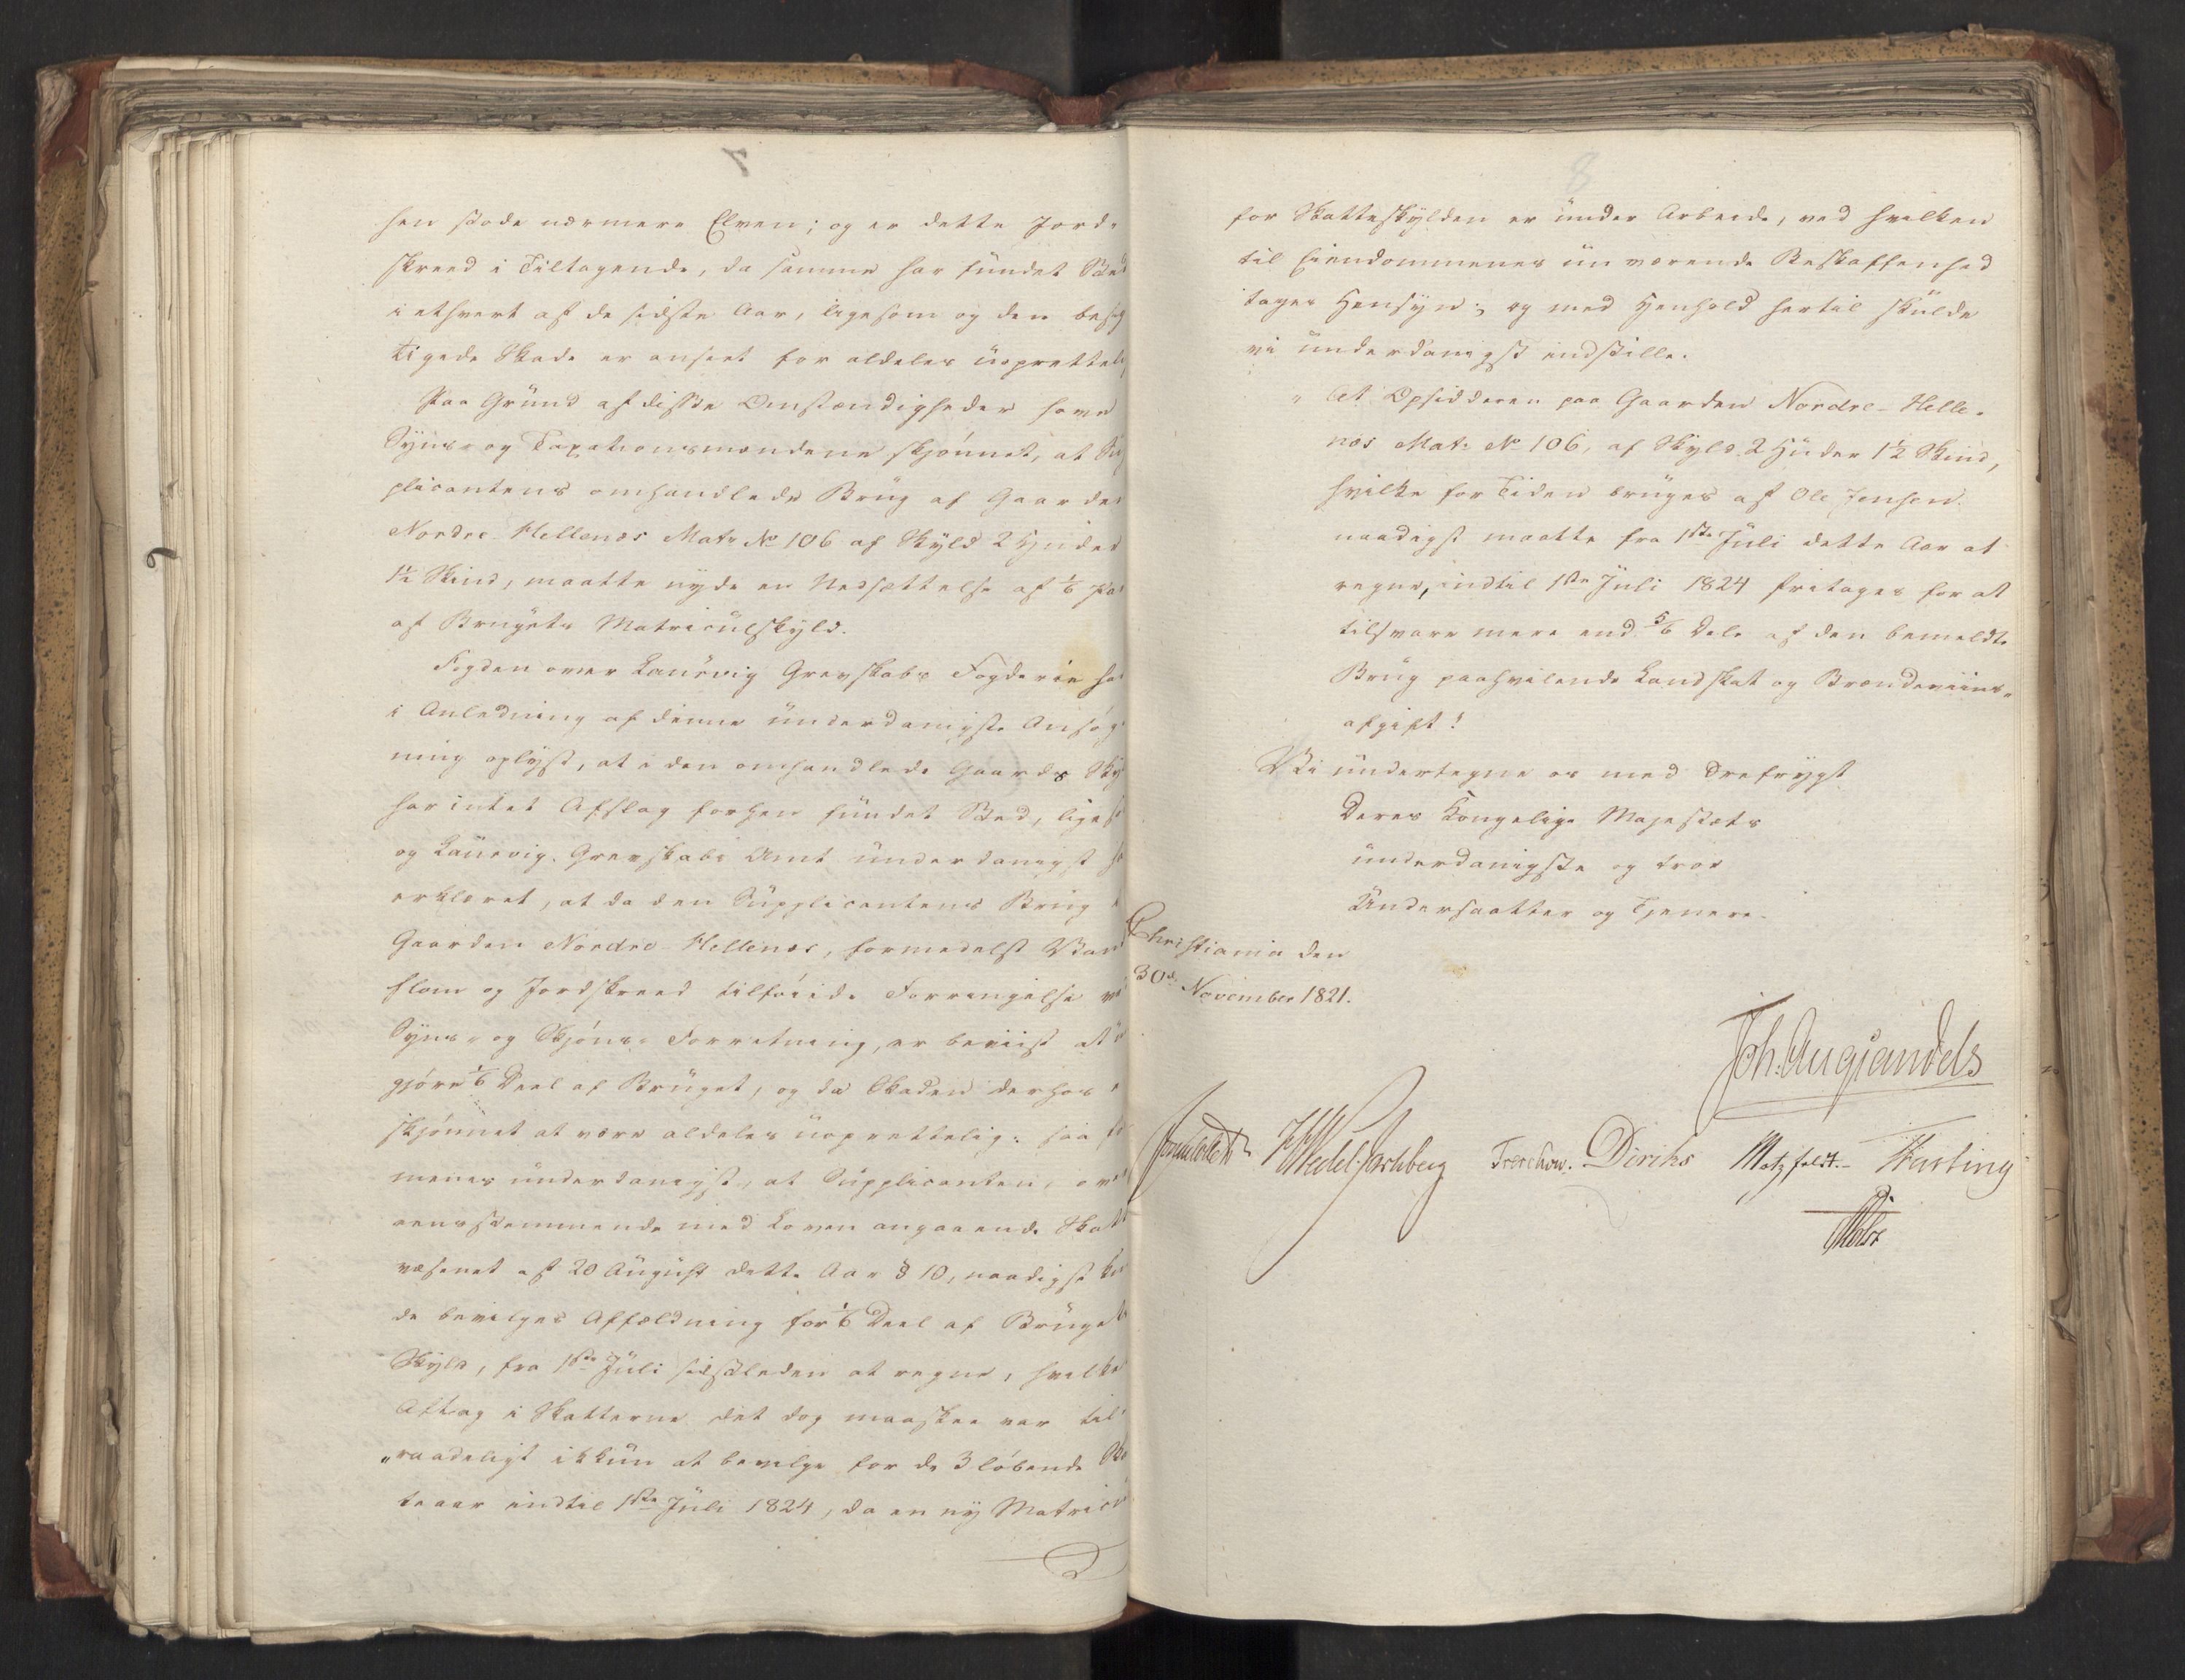 7
hen stode nærmere Elven; og er dette Jord-
skreed i Tiltagende, da samme har fundet Sted
i ethvert af de sidste Aar, ligesom og den besig
tigede Skade er anseet for aldeles uopretteli
Paa Grund af disse Omstændigheder have
Syns- og Taxationsmændene skjønnet, at Su
plicantens omhandlede Brug af Gaarden
Nordre-Hellenæs Matr No 106 af Skyld 2 Huder
1½ Skind, maatte nyde en Nedsættelse af 1/6
af Brugets Matriculskyld.
Fogden over Laurvig Grevskabs Fogderie ha
i Anledning af denne underdanigste Ansøg
ning oplyst, at i den omhandlede Gaards Sky
har intet Afslag forhen fundet Sted, liges
og Laurvig Grevskabs Amt underdanigst ha
erklæret, at da den Supplicantens Brug
Gaarden Nordre-Hellenæs, formedelst Van
flom og Jordskreed tilføiede Forringelse ve
Syns- og Skjøns-Forretning, er beviist at u
gjøre 1/6 Deel af Bruget, og da Skaden derhos
skjønnet at være aldeles uoprettelig: saa fo
menes underdanigst, at Supplicanten, ove
eensstemmende med Loven angaaende Skatt
væsenet af 20 August dette Aar § 10, naadigst kun
de bevilges Affældning for 1/6 Deel af Bruget
Skyld, fra 1ste Juli sidstleden at regne, hvilket
Aftag i Skatterne det dog maaskee var til
"raadeligt ikkun at bevilge for de 3 løbende Ska
teaar indtil 1ste Juli 1824, da en ny Matricu
8
for Skatteskylden er under Arbeide, ved hvilken
til Eiendommenes nu værende Beskaffenhed
tages Hensyn; og med Henhold hertil skulde
vi underdanigst indstille.
" At Opsidderen paa Gaarden Nordre-Helle-
næs Matr No 106, af Skyld 2 Huder 1½ Skind,
hvilke for Tiden bruges af Ole Jensen.
naadigst maatte fra 1ste Juli dette Aar at
regne, indtil 1ste Juli 1824 fritages for at
tilsvare mere end 5/6 Dele af den bemeldte
Brug paahvilende Landskat og Brændeviins-
afgift!
Vi undertegne os med Ærefrygt
Deres Kongelige Majestæts
underdanigste og troe
Undersaatter og Tjenere.
Christiania den
30d November 1821.
Joh. Aug Sandels
Sommerhielm HWedel Jarlsberg Treschow. Diriks Motzfeldt.- Fasting
Holst